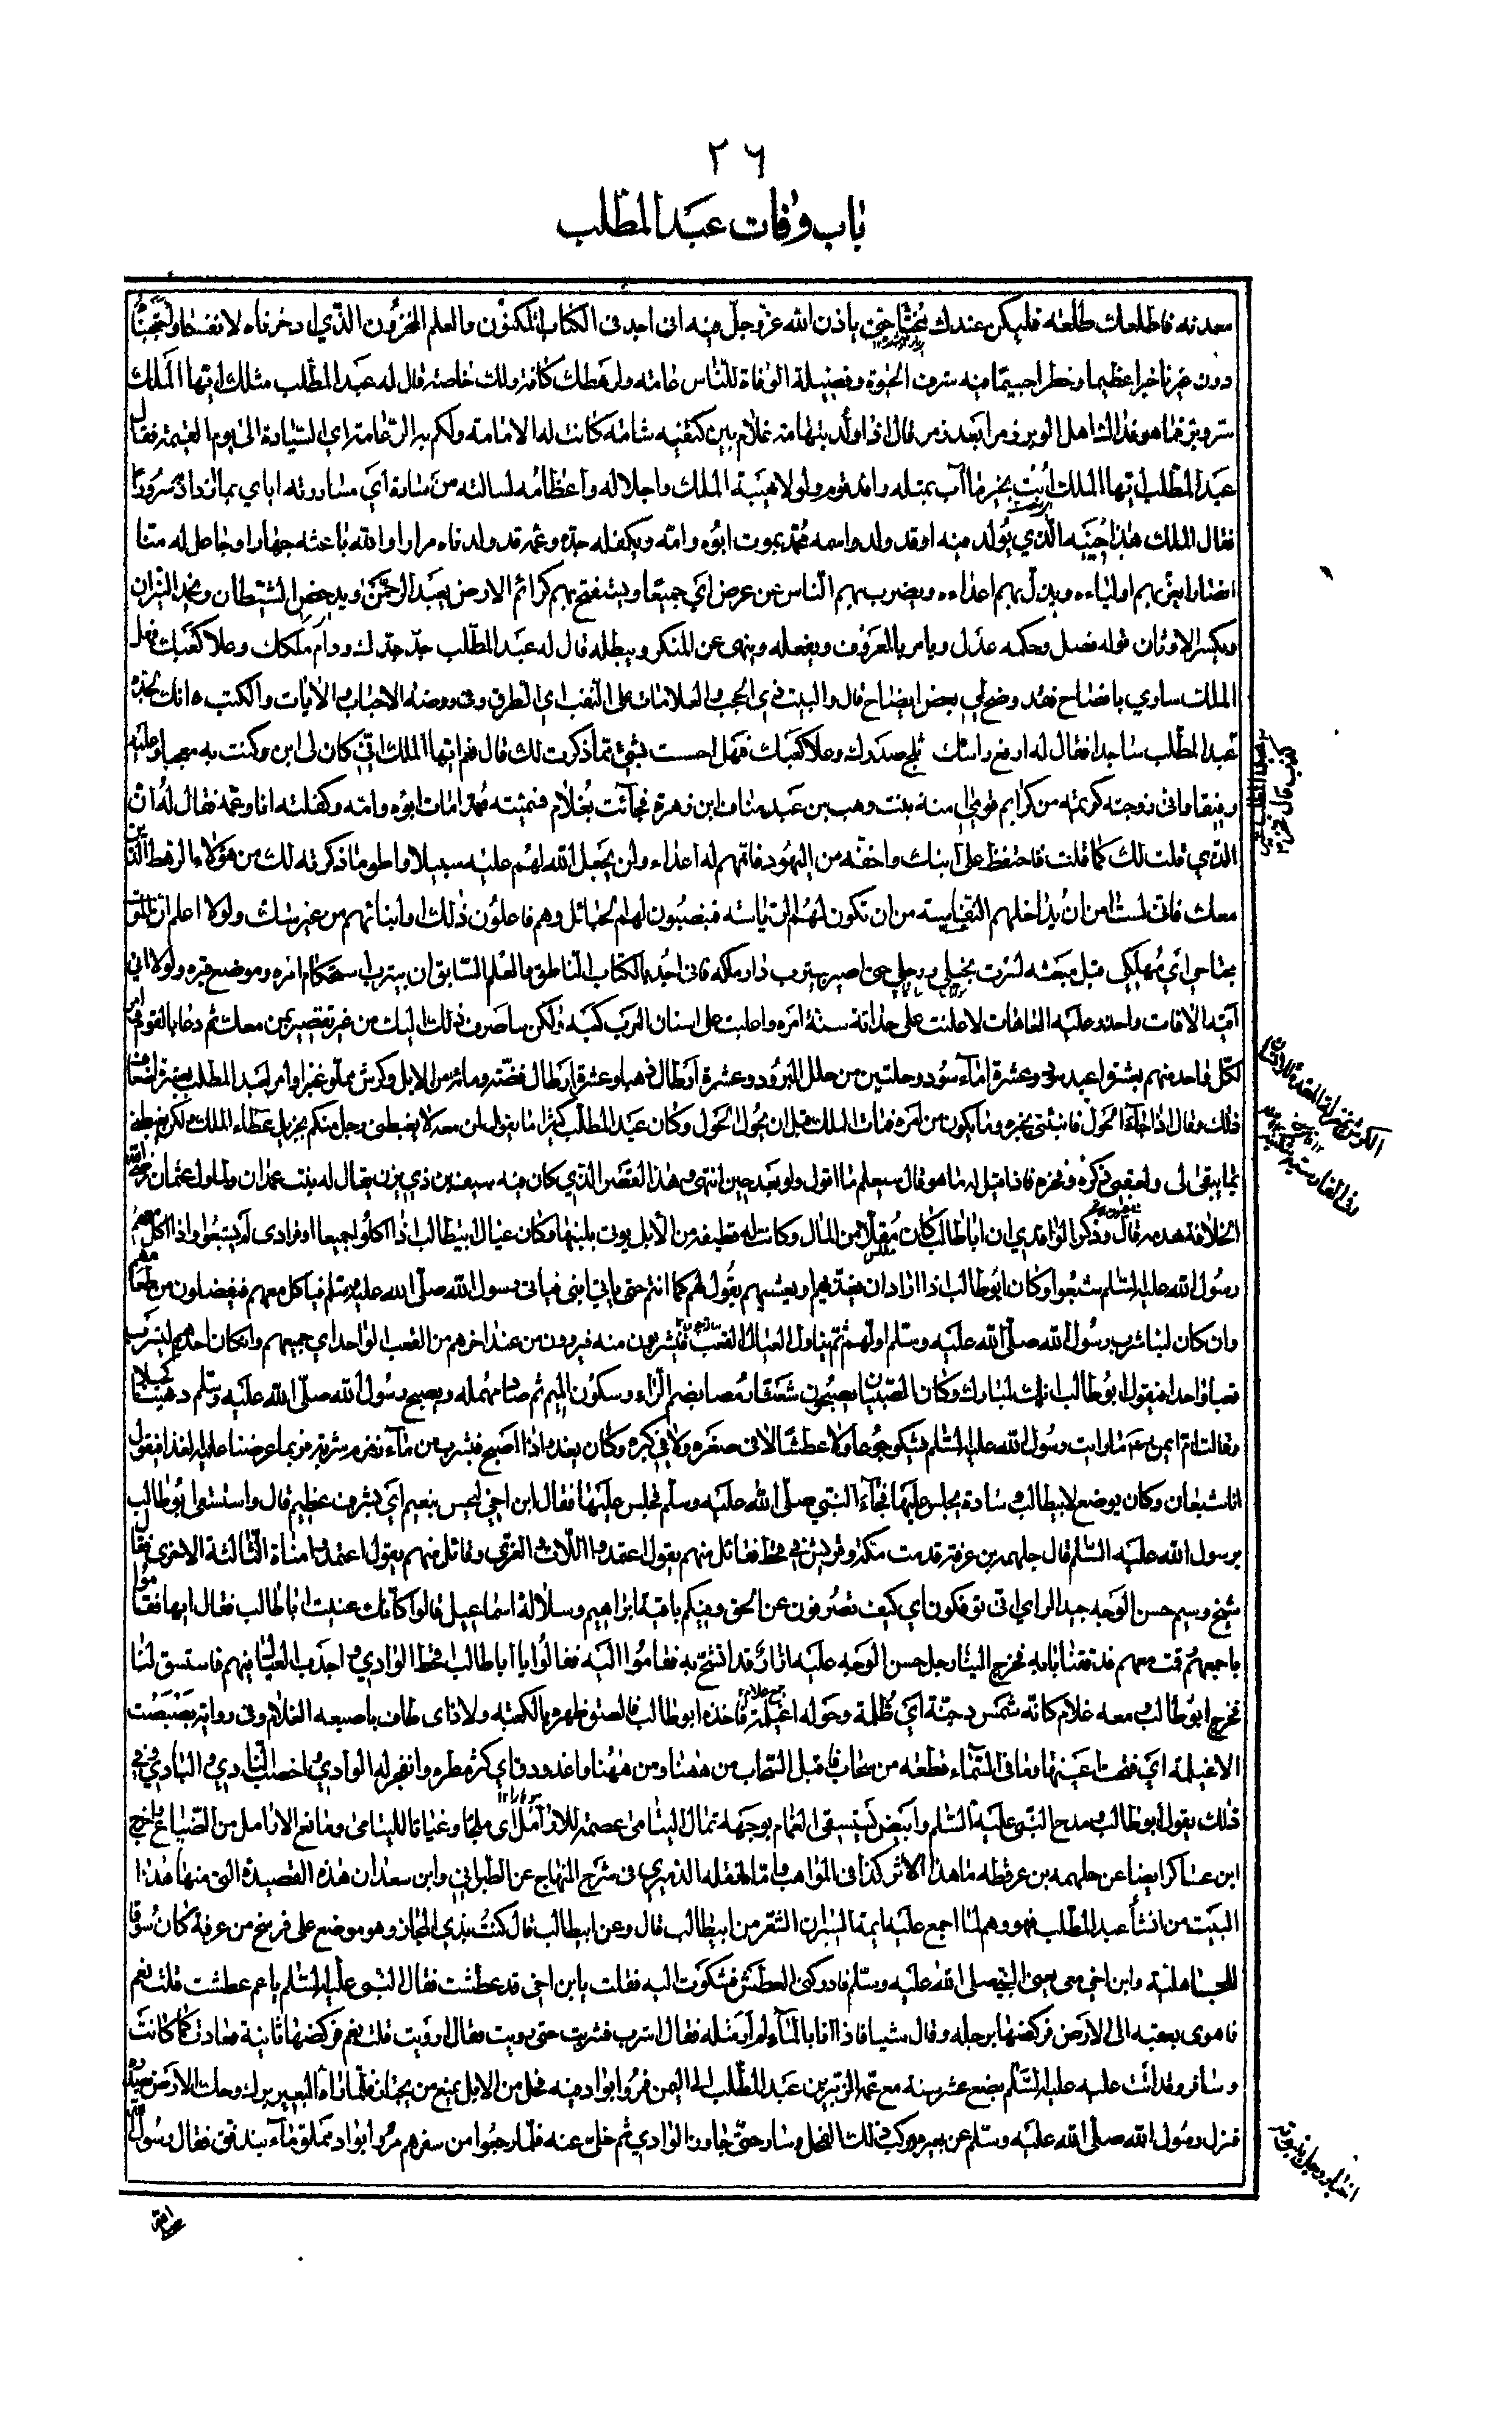 ٢٦
باب وفات عبد المطلب
معدنه فاطلعتك طلعه فليكن عندك حتى ياذن الله عز وجل فيه انى اجد فى الكتاب المكنون والعلم المخزون الذي ادخرناه لانفسنا
دون غيرنا خبرا عظيما وخطرا جسيما فيه شرف الحيوة وفضيلة الوفاة للناس عامته ولرهطك كافة ولك خاصة قال له عبد المطلب مثلك ايها الملك
سر وبر فما هو فداك اهل الوبر زمرا بعد زمر قال اذا ولد بتهامة غلام بين كتفيه شامة كانت له الامامة ولكم به الزعامة اي السيادة الى يوم القيمة فقال
عبد المطلب ايها الملك ابت بخير ما آب بمثله وافد قوم ولولا هيبة الملك واجلاله واعظامه لسالته من مساره اي مساررته اياي بما ازداد سرورا
فقال الملك هذا حينه الذي يولد فيه او قد ولد واسمه محمد يموت ابوه وامه ويكفله جده وعمه قد ولدناه مرارا والله باعثه جهارا وجاعل له منا
انصارا يعز بهم اولياءه ويذل بهم اعداءه ويضرب بهم الناس عن عرض اي جميعا ويستفتح بهم كرائم الارض يعبد الرحمن ويدحض الشيطان ويخمد النيران
ويكسر الاوثان قوله فصل وحكمه عدل ويامر بالمعروف ويفعله وينهى عن المنكر ويبطله قال له عبد المطلب جد جدك ودام ملكك وعلا كعبك فهل
الملك ساري بافصاح فقد وضح لي بعض ايضاح قال والبيت ذي الحجب والعلامات على النقب اي الطرق انك لجده
عبد المطلب ساجدا فقال له ارفع راسك ثلج صدرك وعلا كعبك فهل احسست بشئ مما ذكرت لك قال نعم ايها الملك انى كان لى ابن وكنت به معجبا وعليه
رفيقا وانى زوجته كريمة من كرايم قومي امنة بنت وهب بن عبد مناف ابن زهرة فجائت بغلام فسميته محمدا مات ابوه وامه وكفلته انا وعمه فقال له ان
الذي قلت لك كما قلت فاحتفظ على ابنك واحذر من اليهود فانهم له اعداء ولن يجعل الله لهم عليه سبيلا واطو ما ذكرته لك من هؤلاء الرهط الذين
معك فانى لست امن ان يداخلهم النفاسة من ان تكون لهم الرياسة فينصبون لهم الحبائل وهم فاعلون ذلك او ابنائهم من غير شك ولولا اعلم ان الموت
مجتاحي اي مهلكي قبل مبعثه لسرت بخيلي ورجلي حتى اصير بيثرب دار ملكه فانى اجد بالكتاب الناطق والعلم السابق ان بيثرب استحكام امره وموضع قبره ولولا انى
اقيه الافات واحذر عليه العاهات لاعلنت على حداثة سنه امره واعليت على اسنان العرب كعبه ولكن ساصرف ذلك اليك من غير تقصير بمن معك ثم دعا بالقوم
لكل واحد منهم بعشرة اعبد وعشرة اماء سود وحلتين من حلل البرود وعشرة ارطال ذهبا وعشرة ارطال فضة ومائة من الابل وكرش مملو عنبرا وامر لعبد المطلب بعشرة اضعاف
ذلك وقال اذا جاء الحول فانبئنى بخبره وما يكون من امره فمات الملك قبل ان يحول الحول وكان عبد المطلب كثيرا ما يقول لمن معه لا يغبطنى رجل منكم بجزيل عطاء الملك ولكن يغبطنى
بما يبقى لى ولعقبى ذكره وفخره فاذا قيل له ما هو قال سيعلم ما اقول ولو بعد حين انتهى هذا القصر الذي كان فيه سيف بن ذي يزن يقال له بيت غمدان
الخلافة هدمه قال وذكر الواقدي ان ابا طالب كان مقلا من المال وكانت له قطيعة من الابل يوتى بلبنها وكان عيال ابيطالب اذا اكلوا جميعا او فرادى لم يشبعوا واذا اكل معهم
رسول الله عليه السلم شبعوا وكان ابو طالب اذا اراد ان يغديهم او يعشيهم يقول لهم كما انتم حتى ياتي ابنى فياتى رسول الله صلى الله عليه وسلم فياكل معهم فيفضلون من طعامهم
وان كان لبنا شرب رسول الله صلى الله عليه وسلم اولهم ثم يناول العيال القعب فيشربون منه فيروون من عند اخرهم من القعب الواحد اي جميعهم وان كان احدهم ليشرب
قعبا واحدا فيقول ابو طالب انك لمبارك وكان الصبيان يصبحون شعثا رمصا بضم الراء وسكون الميم ثم صاد مهمله ويصبح رسول الله صلى الله عليه وسلم دهينا كحيلا
وقالت ام ايمن ما رايت رسول الله عليه السلم شكى جوعا ولا عطشا لا فى صغره ولا في كبره وكان يغدو اذا اصبح فيشرب من ماء زمزم شربة فربما عرضنا عليه الغذا فيقول
انا شبعان وكان يوضع لابيطالب وسادة يجلس عليها فجاء النبي صلى الله عليه وسلم فجلس عليها فقال ابن اخي ليحس بنعيم اي بشرف عظيم قال واستسقى ابو طالب
برسول الله عليه السلم قال جلهمة بن عرفطة قدمت مكة وقريش في قحط فقائل منهم يقول اعتمدوا اللات والعزى وقائل منهم يقول اعتمدوا مناة الثالثة الاخرى فقال
شيخ وسيم حسن الوجه جيد الراي انى توفكون اي كيف تصرفون عن الحق وفيكم باقية ابراهيم وسلالة اسماعيل قالوا كانك عنيت ابا طالب فقال ايها فقاموا
باجمعهم وقمت معهم فدققنا بابه فخرج الينا رجل حسن الوجه عليه ازار قد اتشح به فقاموا اليه فقالوا يا ابا طالب قحط الوادي واجدب العيال فهم فاستسق لنا
فخرج ابو طالب ومعه غلام كانه شمس دجنة اي ظلمة وحوله اغيلمة فاخذه ابو طالب فالصق ظهره بالكعبة ولاذ اى طاف باصبعه الغلام وفى رواية بصبصت
الاغيلمة اي فتحت عينها وما فى السماء قطعه من سحاب فاقبل السحاب من ههنا ومن ههنا واغدودق اي كثر مطره وانفجر له الوادي واخصب النادي والبادي وفي
ذلك يقول ابو طالب يمدح النبى عليه السلم وابيض يستسقى الغمام بوجهه ثمال اليتامى عصمة للارامل اى ملجا وغياثا لليتامى ومانع الارامل من الضياع واخرج
ابن عساكر ايضا عن جلهمه بن عرفطه ما هذا الاثر كذا فى المواهب واما ما نقله الدميري فى شرح المنهاج عن الطبراني وابن سعد ان هذه القصيدة التى منها هذا
البيت من انشا عبد المطلب فهو وهم لما اجمع عليه ايمة السير ان الشعر من ابيطالب قال وعن ابيطالب قال كنت بذي المجاز وهو موضع على فرسخ من عرفة كان سوقا
للجاهلية وابن اخي معى يعنى النبى صلى الله عليه وسلم فادركنى العطش فشكوت اليه فقلت يا ابن اخى قد عطشت فقال النبى عليه السلم يا عم عطشت قلت نعم
فاهوى بعقبه الى الارض فركضها برجله وقال شيئا فاذا انا بالماء لم ار مثله فقال اشرب فشربت حتى رويت فقال ارويت قلت نعم فركضها ثانية فعادت كما كانت
وسافر وقد اتت عليه عليه السلم بضع عشر سنه مع عمه الزبير بن عبد المطلب الى اليمن فمروا بواد فيه فحل من الابل يمنع من يجتاز فلما راه البعير برك وحك الارض بصدره
فنزل رسول الله صلى الله عليه وسلم عن بعيره وركب ذلك الفحل وسار حتى جاوز الوادي ثم خلى عنه فلما رجعوا من سفرهم مروا بواد مملو ماء يتدفق فقال رسول